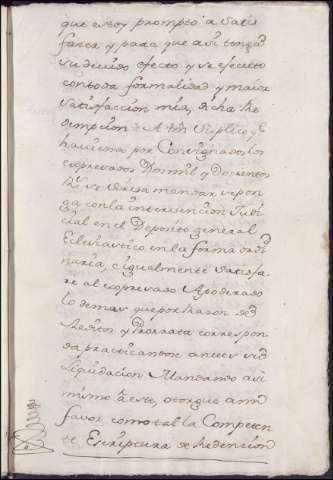 que estoy prompto a satis
facer, y para que asi tenga
su devido efecto y se efectue
con toda formalidad y maior
satisfaccion mia, dicha Re
dempcion A Vm Suplico, q
haviendo por Consignados los
expresados Dosmil y Docientos
se sirva mandar se pon
ga con la intervencion Judi
cial en el Deposito general
Eclesiastico en la forma ordi
naria, e igualmente satisfa
re al expresado Apoderado
lo demas que por razon de
Reditos y Prorrata correspon
da practicandose antes su
Liquidacion Mandando asi
mismo a este, otorgue a mi
favor como tal la Competen
te Escriptura de Redencion